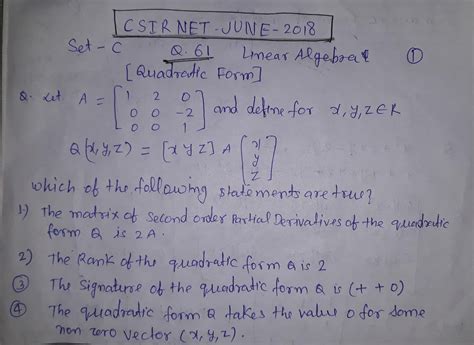 CSIR NET - JUNE - 2018
Set - C Q. 61 Linear Algebra ①
[Quadratic Form]
Q. Let A = [1 2 0
0 0 -2
0 0 1] and define for x, y, z ∈ R
Q(x, y, z) = [x y z] A [x
y
z]
which of the following statements are true?
1) The matrix of second order Partial Derivatives of the quadratic
form Q is 2A.
2) The Rank of the quadratic form Q is 2
③ The Signature of the quadratic form Q is (+ + 0)
④ The quadratic form Q takes the value 0 for some
non zero vector (x, y, z).